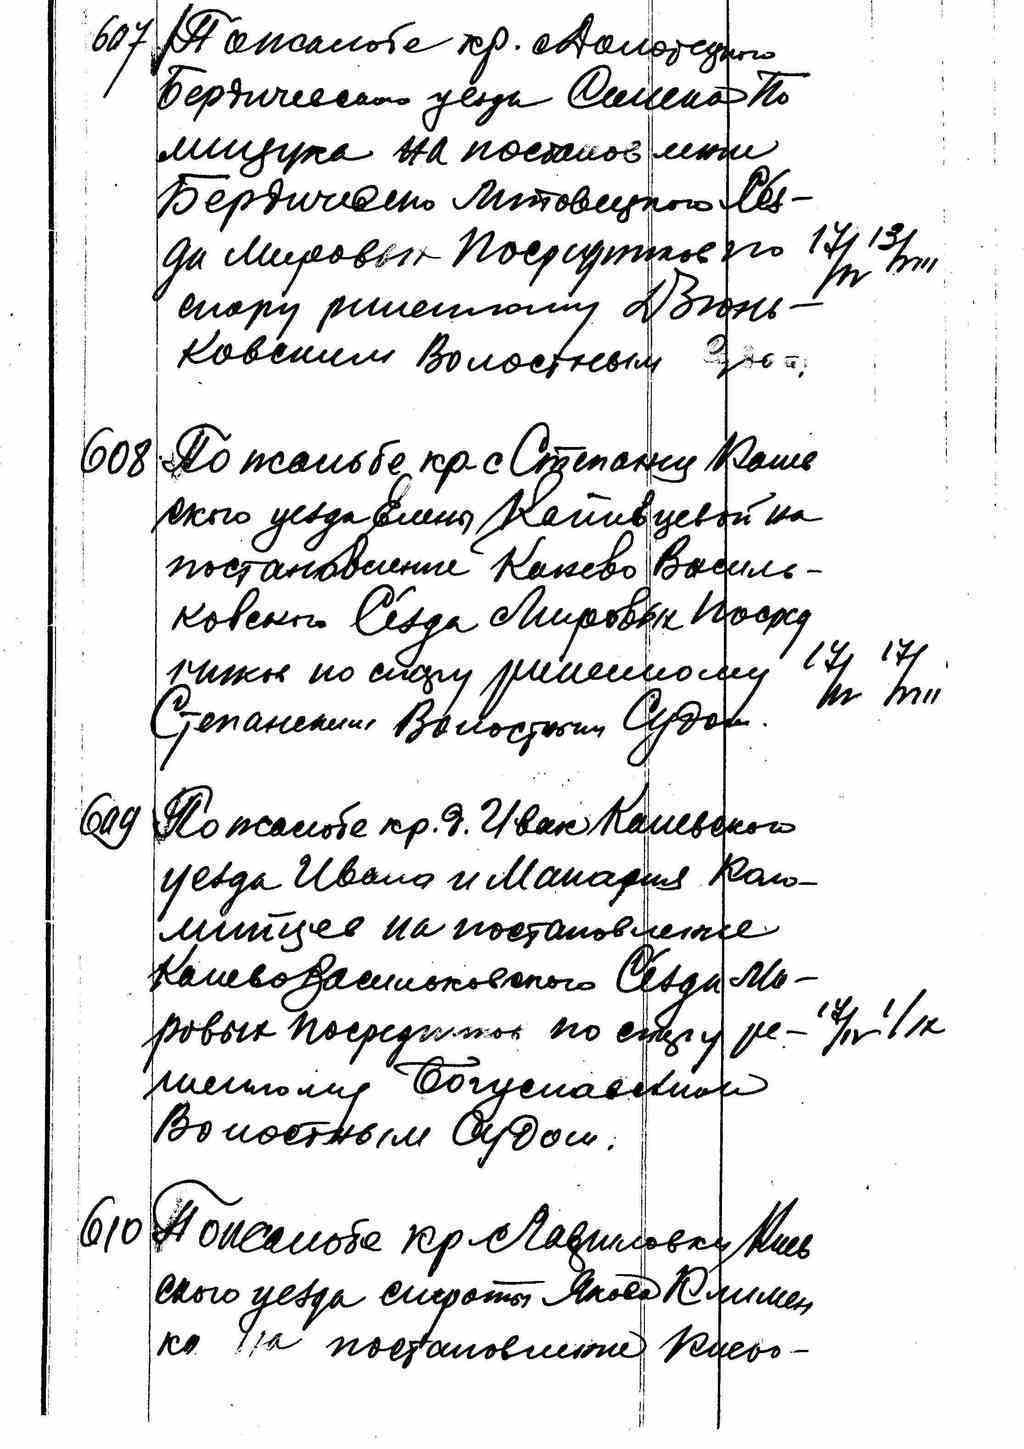 607 По жалобе кр. с
Бердического уезда Семена По
лищука на постановление
Бердичево Липовецкого Съез-
да Мировых Посредников по 17/IV 13/VIII
спору решенному Дзюнь-
ковским Волостным Судом.
608 По жалобе кр с Степанцы Канев
ского уезда Елены на
постановление Канево Василь-
ковского Съезда Мировых Посред
ников по спору решенному 17/IV 17/VIII
Степанским Волостным Судом.
609 По жалобе кр. д. Ивак Каневского
уезда Ивана и Макария Коло-
мийцев на постановление
Канево Васильковского Съезда Ми-
ровых Посредников по спору ре- 17/IV 1/IX
шенному Богуславским
Волостным Судом.
610 По жалобе кр с Гавриловки Киев
ского уезда сироты Якова Климен
ко на постановление Киево-